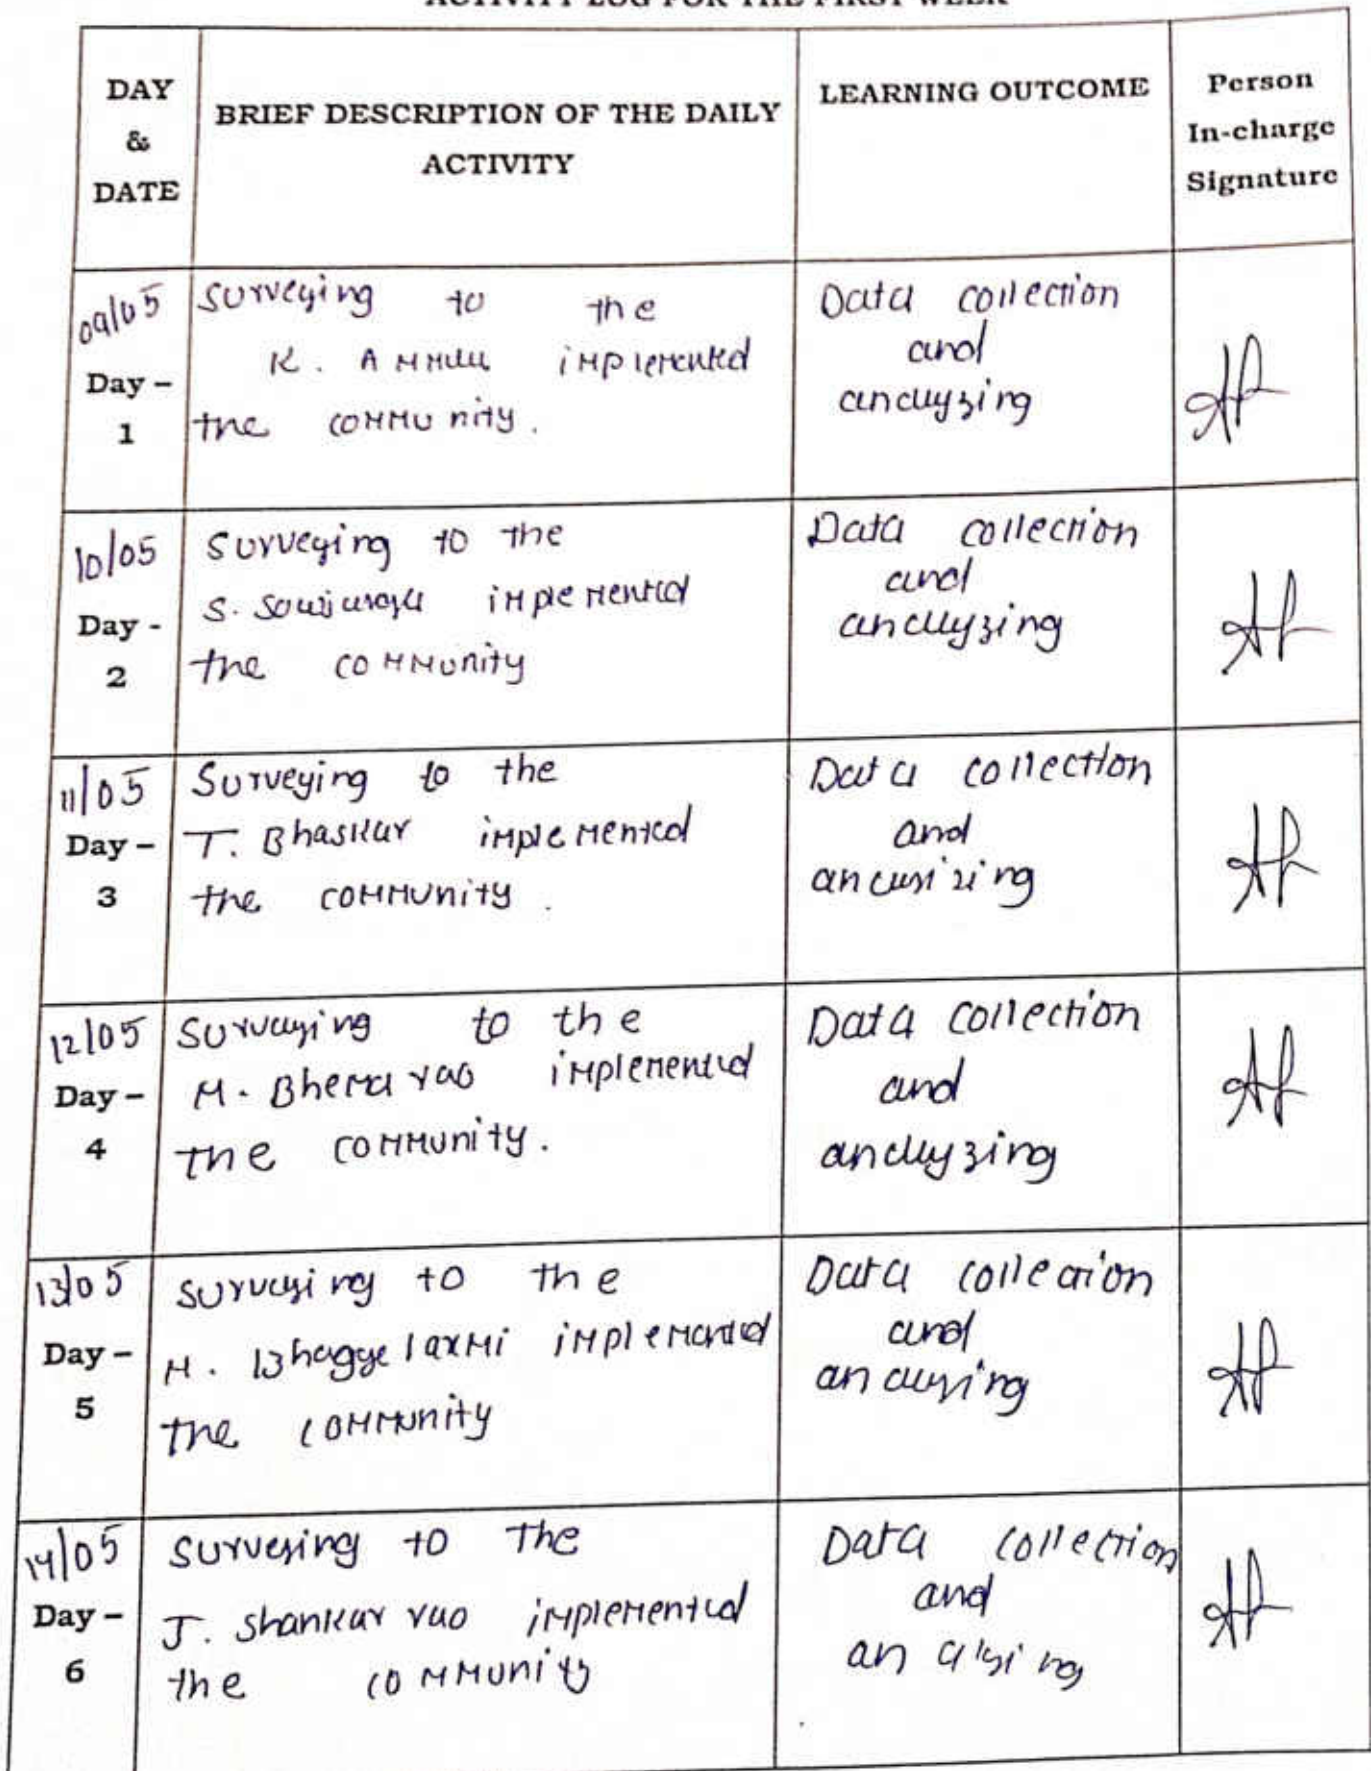 ACTIVITY LOG FOR THE FIRST WEEK
DAY & DATE
BRIEF DESCRIPTION OF THE DAILY ACTIVITY
LEARNING OUTCOME
Person In-charge Signature
09/05
Day – 1
Surveying to the
K. Ammulu implemented
the community.
Data collection
and
analyzing
10/05
Day - 2
Surveying to the
S. implemented
the community
Data collection
and
analyzing
11/05
Day – 3
Surveying to the
T. Bhaskar implemented
the community.
Data collection
and
12/05
Day – 4
Surveying to the
M. Bhema rao implemented
the community.
Data collection
and
analyzing
13/05
Day – 5
Surveying to the
M. Bhagye laxmi implemented
the community
Data collection
and
14/05
Day – 6
Surveying to the
J. Shankar rao implemented
the community
Data collection
and